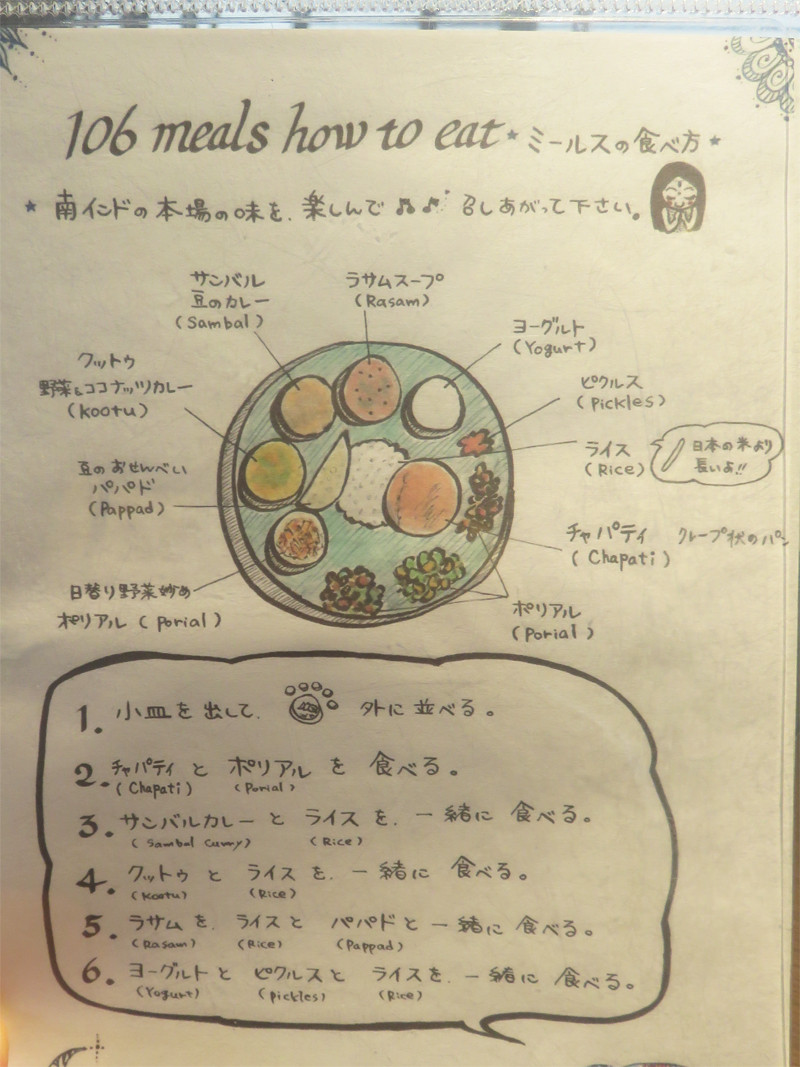 106 meals how to eat ★ミールスの食べ方★
★ 南インドの本場の味を、楽しんで♫♪召しあがって下さい。
サンバル
豆のカレー
(Sambal)
ラサムスープ
(Rasam)
ヨーグルト
(Yogurt)
クットゥ
野菜&ココナッツカレー
(Kootu)
ピクルス
(Pickles)
ライス
(Rice)
日本の米より
長いよ!!
豆のおせんべい
パパド
(Pappad)
チャパティ クレープ状のパン
(Chapati)
日替り野菜炒め
ポリアル (Porial)
ポリアル
(Porial)
1. 小皿を出して、 外に並べる。
2. チャパティ と ポリアル を 食べる。
(Chapati) (Porial)
3. サンバルカレー と ライス を、一緒に 食べる。
(Sambal Curry) (Rice)
4. クットゥ と ライス を、一緒に 食べる。
(Kootu) (Rice)
5. ラサム を、ライス と パパド と 一緒に 食べる。
(Rasam) (Rice) (Pappad)
6. ヨーグルト と ピクルス と ライス を、一緒に 食べる。
(Yogurt) (Pickles) (Rice)